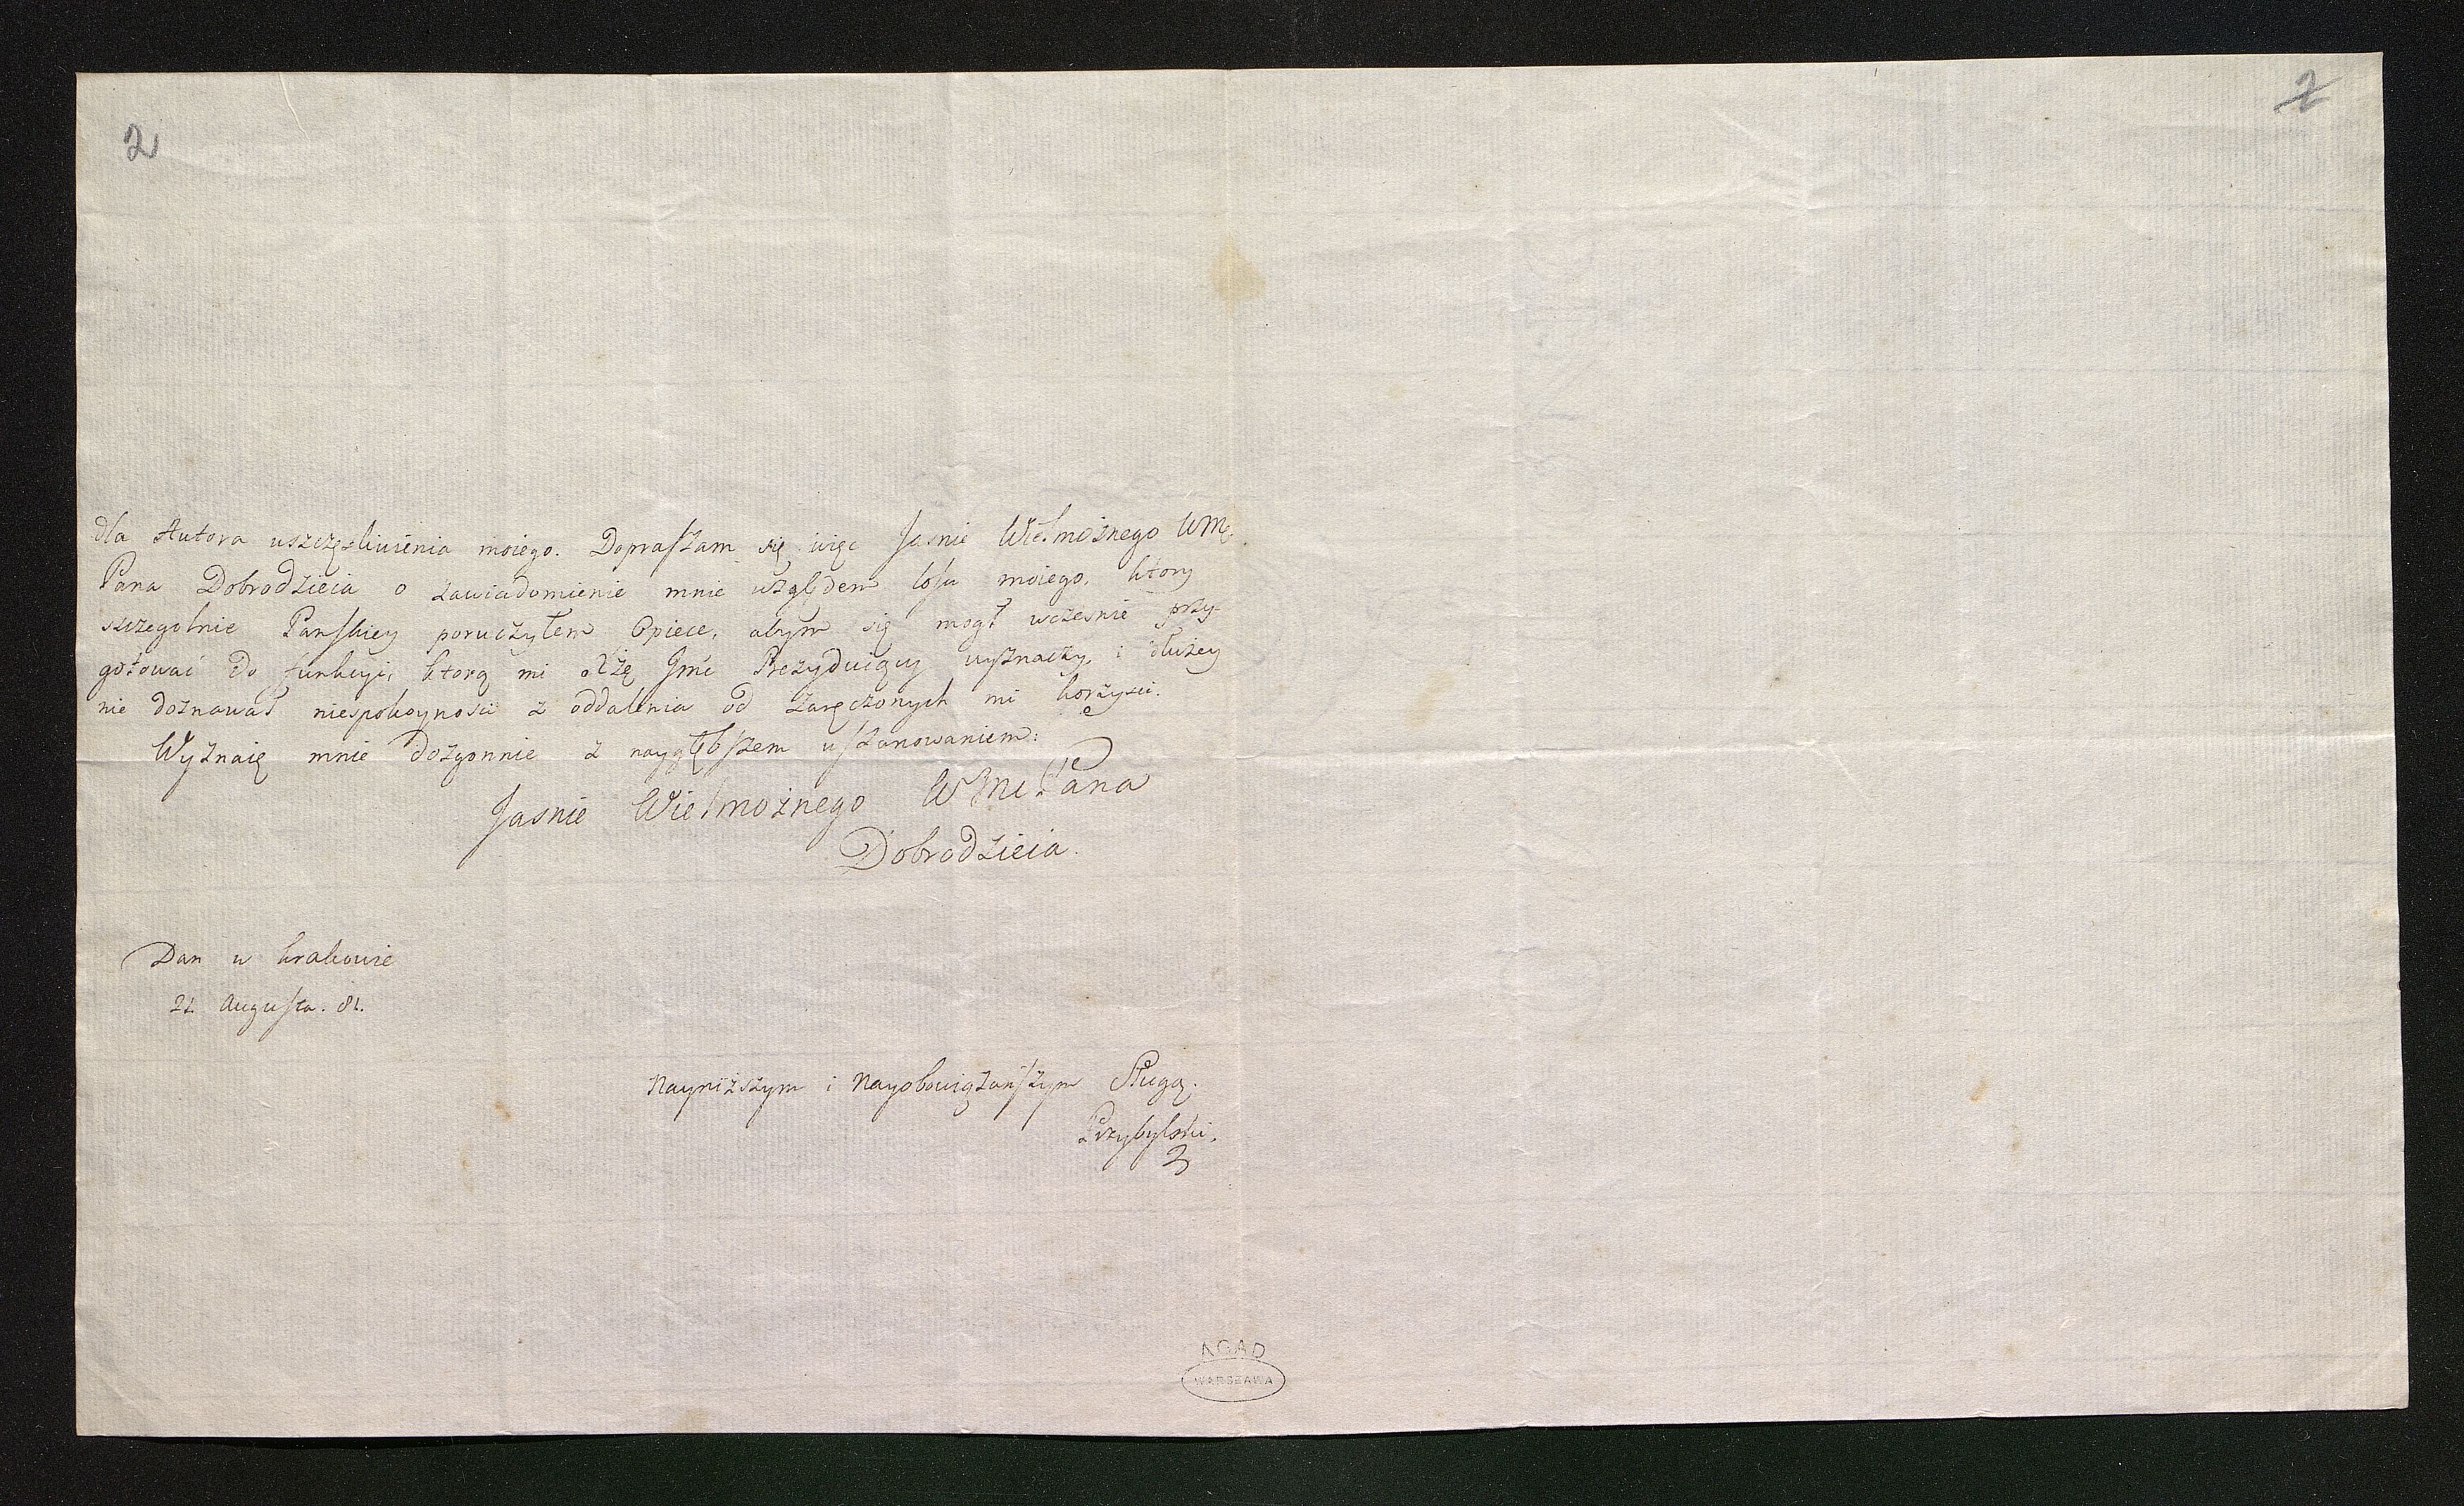 2
2
dla Autora uszczęsliwienia moiego. Dopraszam się więc Jasnie Wielmożnego WMę.
Pana Dobrodzieia o zawiadomienie mnie względem losu moiego, ktory
szczegolnie Panskiey poruczyłem Opiece, abym się mogł wczesnie przy-
gotować do funkcyi, ktorą mi Jmć Prezyduiący wyznaczy, i dłużey
nie doznawał niespokoynosci z oddalenia od zaręczonych mi korzysci.
Wyznaię mnie dozgonnie z naygłębszem uszanowaniem:
Jasnie Wielmożnego WMć Pana
Dobrodzieia.
Dan w Krakowie
21. Augusta. 81.
Nayniższym i Nayobowiązańszym Sługą.
Przybylski.
AGAD
WARSZAWA